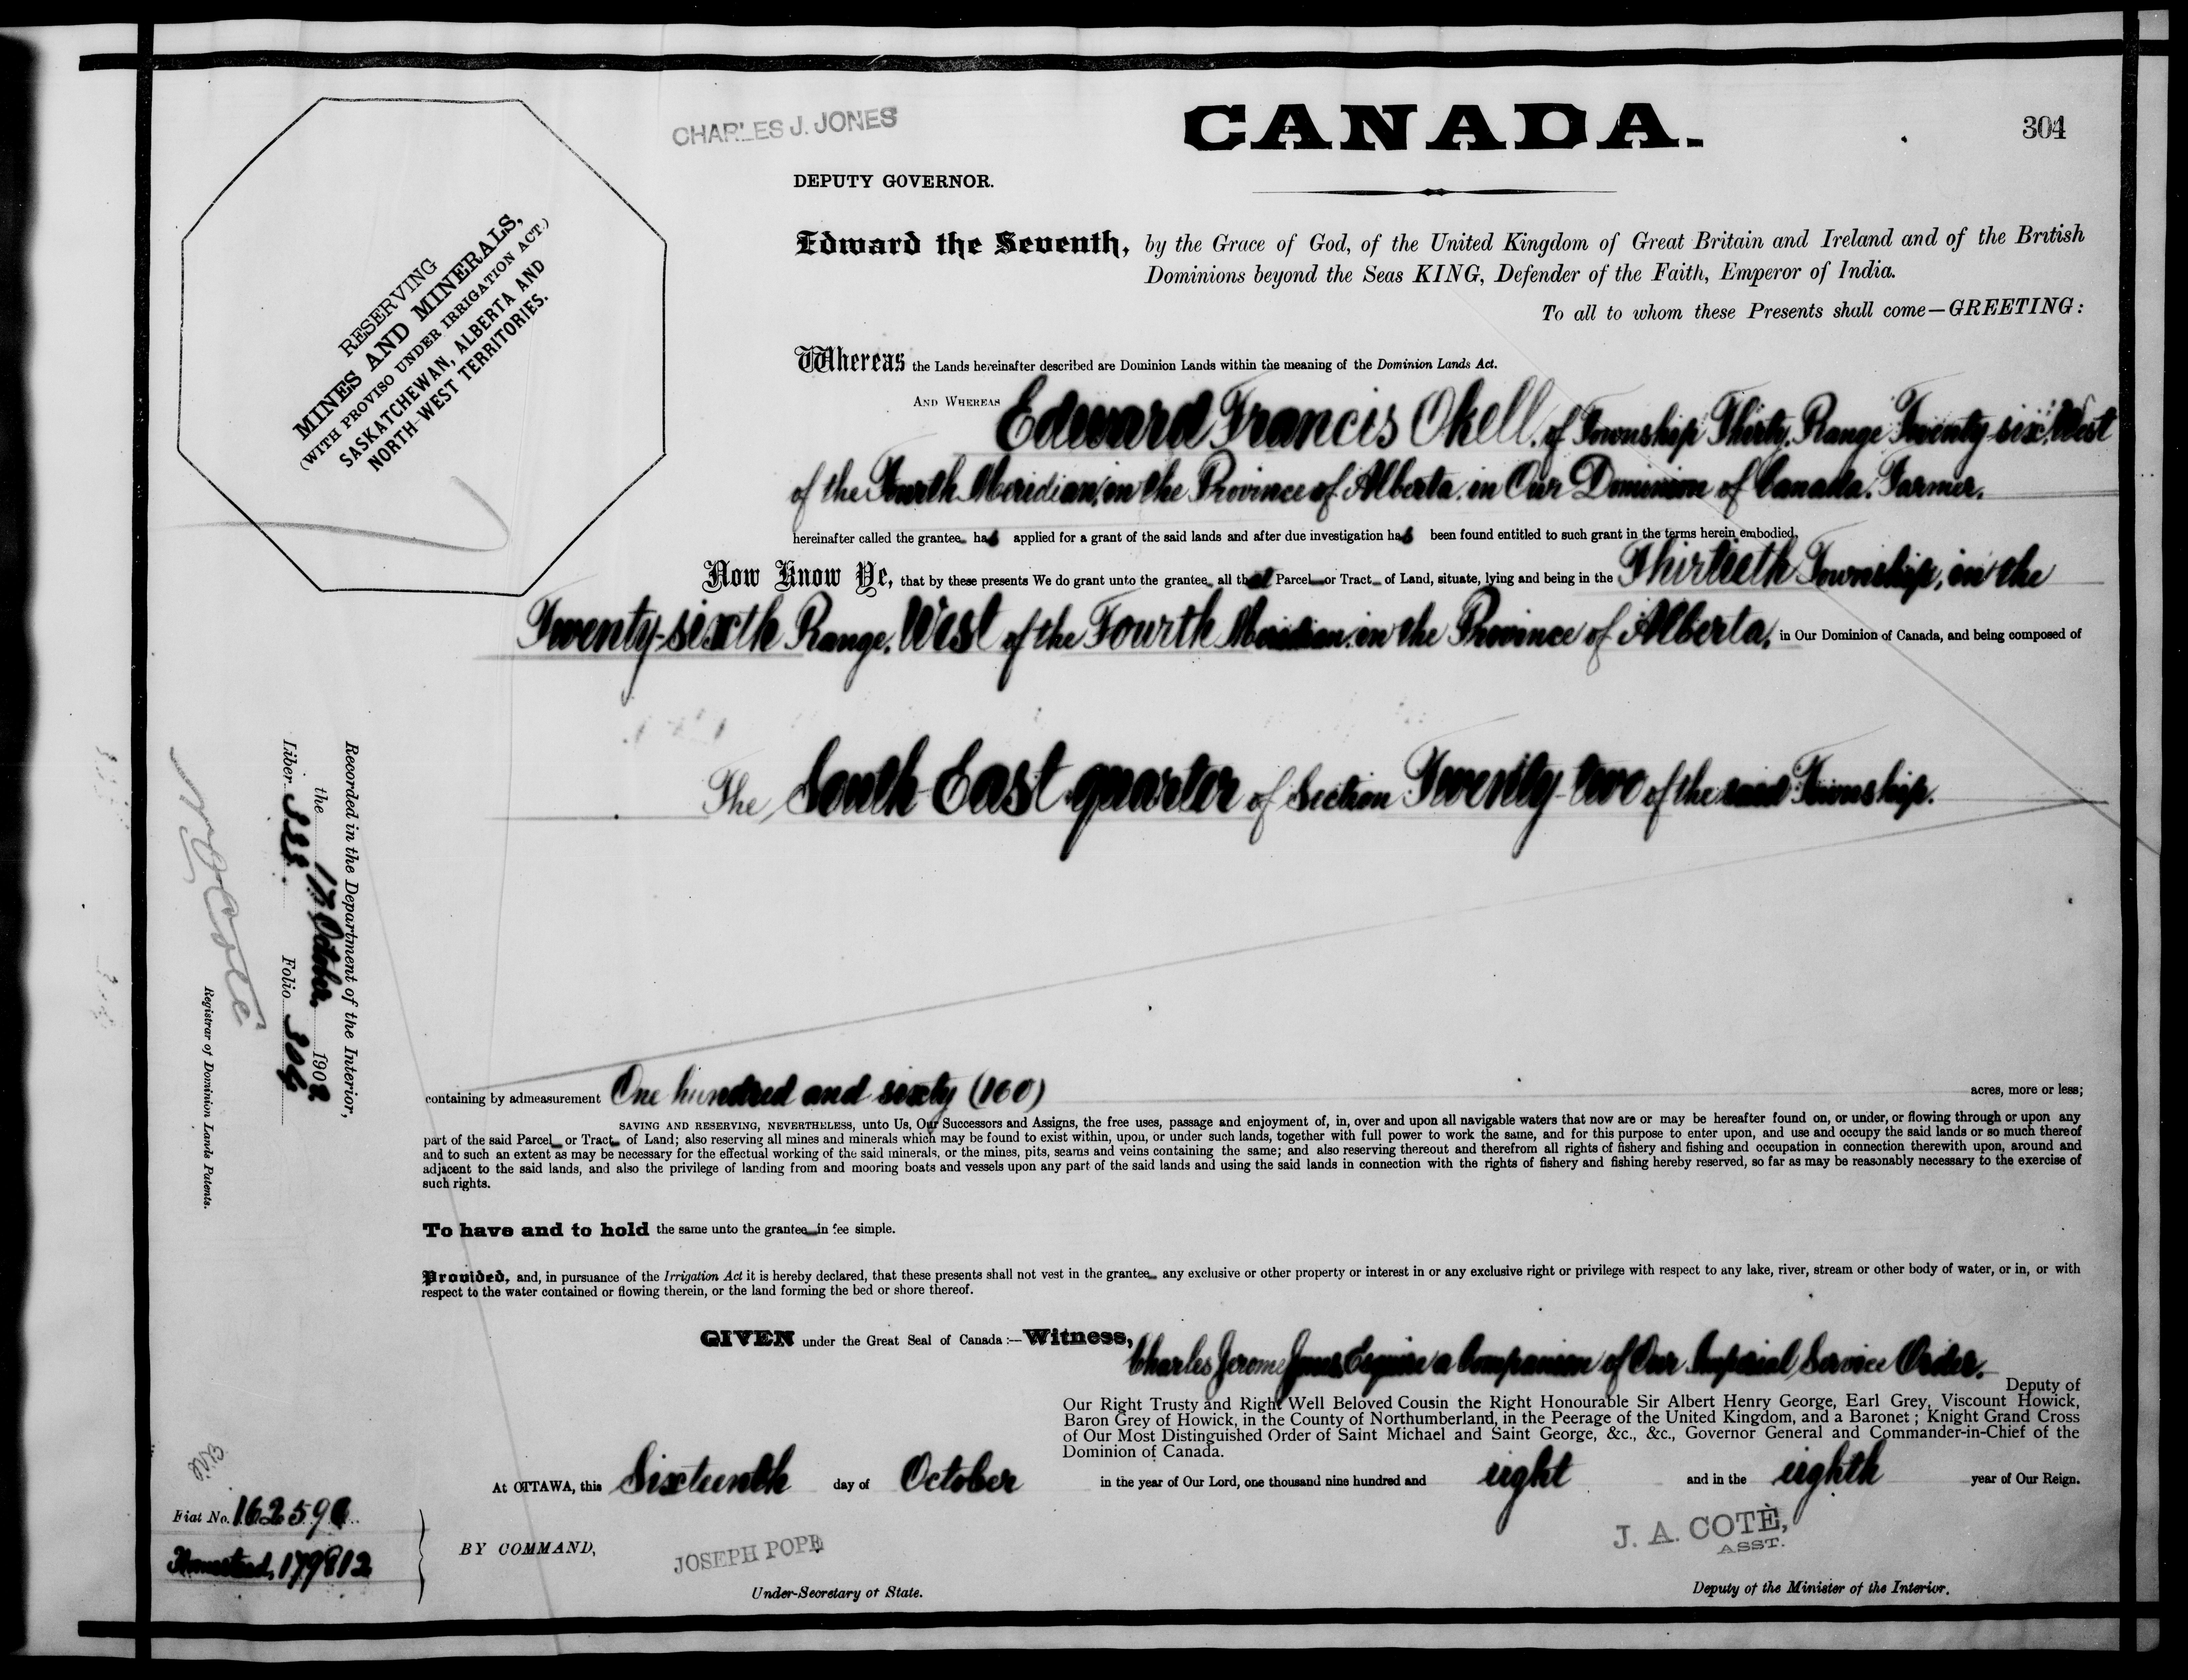 CHARLES J. JONES
CANADA.
304
DEPUTY GOVERNOR.
RESERVING
MINES AND MINERALS,
(WITH PROVISO UNDER IRRIGATION ACT.)
SASKATCHEWAN, ALBERTA AND
NORTH-WEST TERRITORIES.
Edward the Seventh, by the Grace of God, of the United Kingdom of Great Britain and Ireland and of the British
Dominions beyond the Seas KING, Defender of the Faith, Emperor of India.
To all to whom these Presents shall come—GREETING:
Whereas the Lands hereinafter described are Dominion Lands within the meaning of the Dominion Lands Act.
AND WHEREAS Edward Francis Okell, of Township Thirty, Range Twenty-six, West
of the Fourth Meridian, in the Province of Alberta, in Our Dominion of Canada, Farmer,
hereinafter called the grantee has applied for a grant of the said lands and after due investigation has been found entitled to such grant in the terms herein embodied,
Now Know Ye, that by these presents We do grant unto the grantee all that Parcel or Tract of Land, situate, lying and being in the Thirtieth Township, in the
Twenty-sixth Range, West of the Fourth Meridian, in the Province of Alberta, in Our Dominion of Canada, and being composed of
The South East quarter of Section Twenty-two of the said Township.
Recorded in the Department of the Interior,
the 17 October 1908
Liber Folio
Registrar of Dominion Lands Patents.
containing by admeasurement One hundred and sixty (160) acres, more or less;
SAVING AND RESERVING, NEVERTHELESS, unto Us, Our Successors and Assigns, the free uses, passage and enjoyment of, in, over and upon all navigable waters that now are or may be hereafter found on, or under, or flowing through or upon any
part of the said Parcel or Tract of Land; also reserving all mines and minerals which may be found to exist within, upon, or under such lands, together with full power to work the same, and for this purpose to enter upon, and use and occupy the said lands or so much thereof
and to such an extent as may be necessary for the effectual working of the said minerals, or the mines, pits, seams and veins containing the same; and also reserving thereout and therefrom all rights of fishery and fishing and occupation in connection therewith upon, around and
adjacent to the said lands, and also the privilege of landing from and mooring boats and vessels upon any part of the said lands and using the said lands in connection with the rights of fishery and fishing hereby reserved, so far as may be reasonably necessary to the exercise of
such rights.
To have and to hold the same unto the grantee in fee simple.
Provided, and, in pursuance of the Irrigation Act it is hereby declared, that these presents shall not vest in the grantee any exclusive or other property or interest in or any exclusive right or privilege with respect to any lake, river, stream or other body of water, or in, or with
respect to the water contained or flowing therein, or the land forming the bed or shore thereof.
GIVEN under the Great Seal of Canada:—Witness, Charles Jerome Jones, Esquire a Companion of Our Imperial Service Order.
Deputy of
Our Right Trusty and Right Well Beloved Cousin the Right Honourable Sir Albert Henry George, Earl Grey, Viscount Howick,
Baron Grey of Howick, in the County of Northumberland, in the Peerage of the United Kingdom, and a Baronet; Knight Grand Cross
of Our Most Distinguished Order of Saint Michael and Saint George, &c., &c., Governor General and Commander-in-Chief of the
Dominion of Canada.
At OTTAWA, this Sixteenth day of October in the year of Our Lord, one thousand nine hundred and eight and in the eighth year of Our Reign.
Fiat No.
Homestead, 179812
BY COMMAND,
JOSEPH POPE
Under-Secretary of State.
J. A. COTÈ,
ASST.
Deputy of the Minister of the Interior.